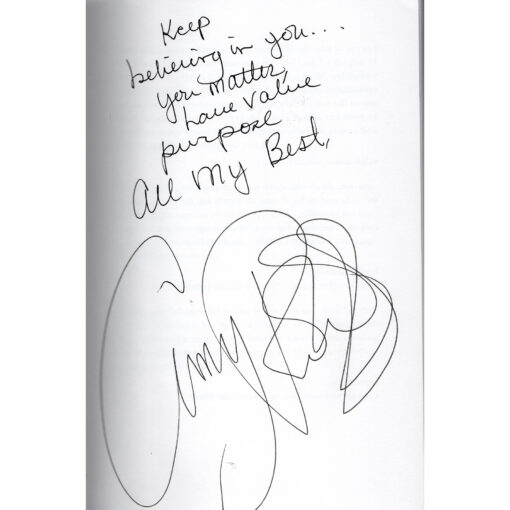 Keep
believing in you...
you matter,
have value
purpose
All My Best,
Amy